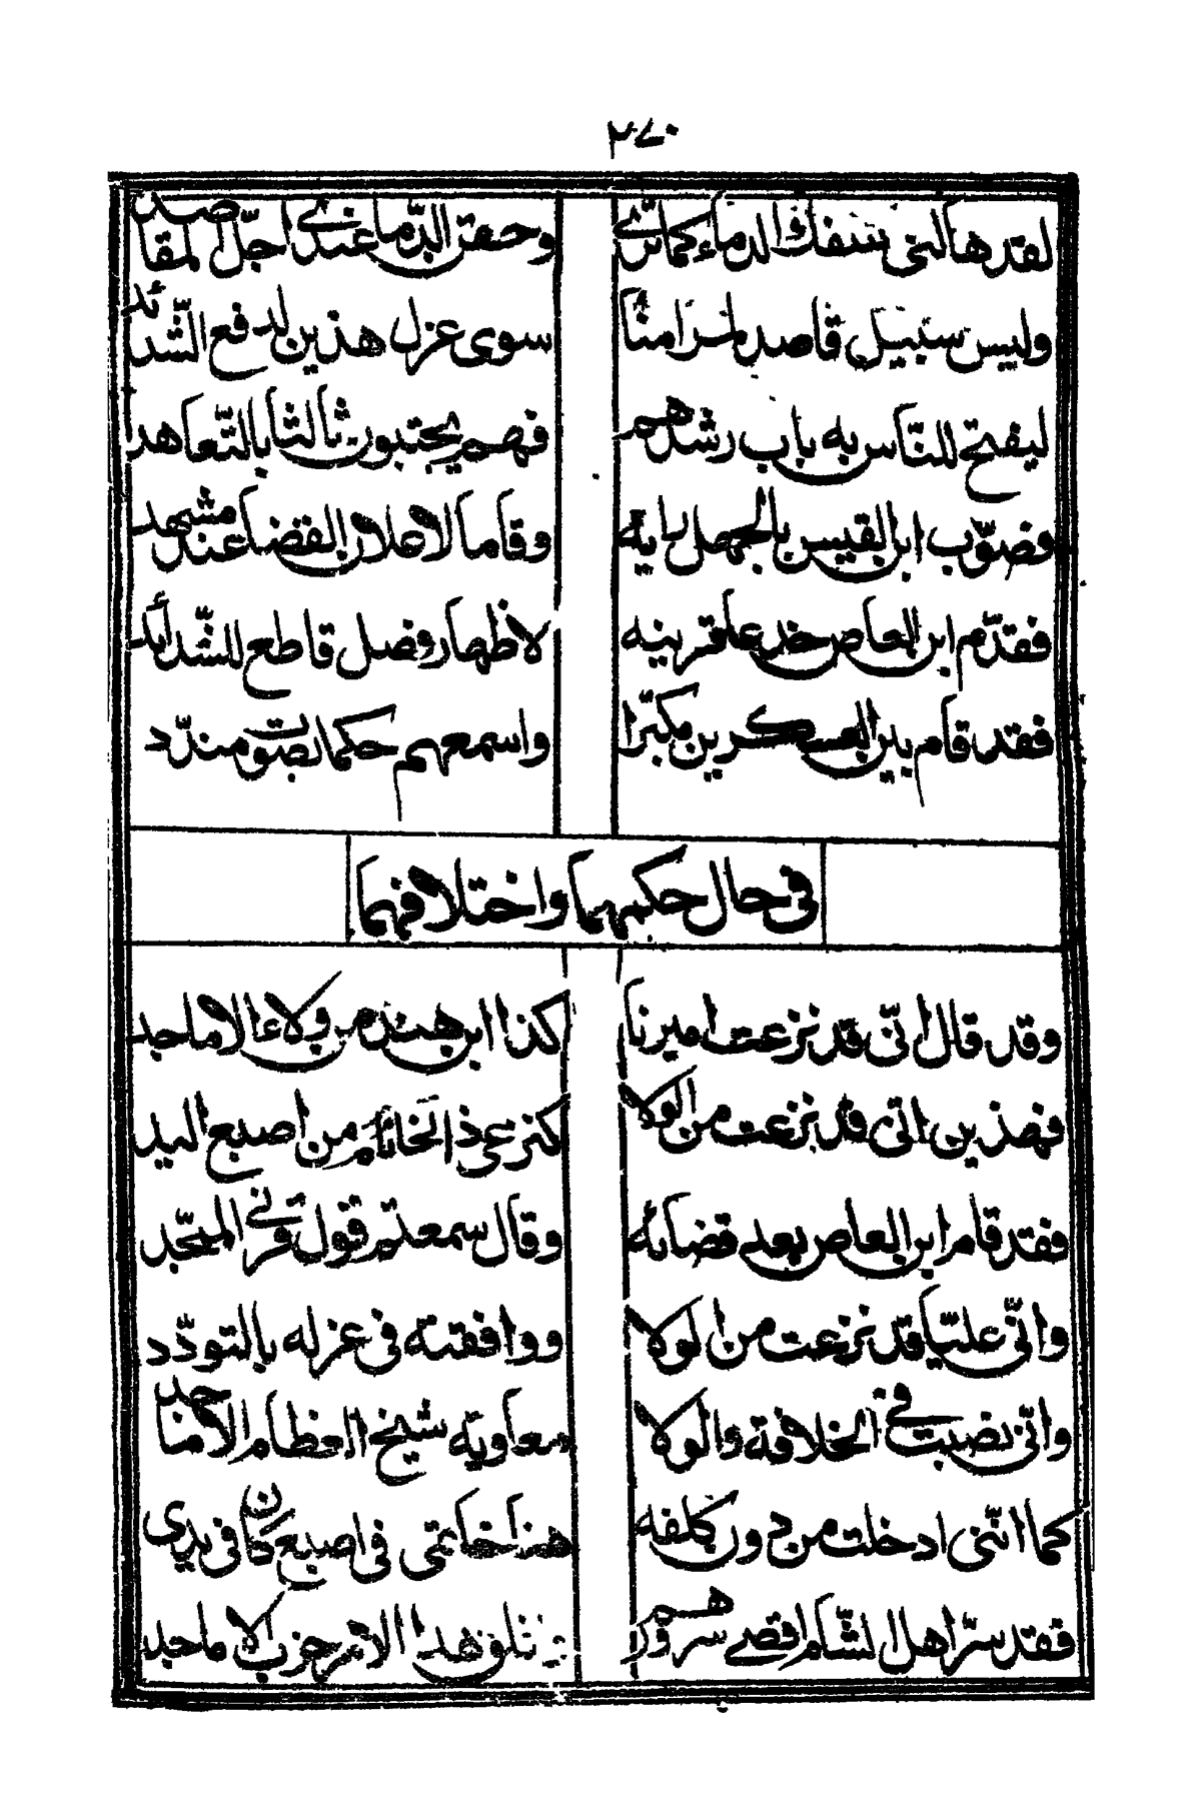 ٢٧٠
لقد هالني سفك الدماء كما ترى وحقن الدما عندي اجل المقاصد
وليس سبيل قاصد مرامنا سوى عزل هذين لدفع الشدائد
ليفتح للناس به باب رشدهم فهم يجتبون ثالثا بالتعاهد
وصوب ابن القيس بالجهل رايه وقاما لاعلان القضا عند مشهد
فقدم ابن العاص خدعا قرينه لاظهار فصل قاطع للشدائد
فقد قام بين العسكرين مكبرا واسمعهم حكما بصوت مندد
في حال حكمهما واختلافهما
وقد قال اني قد نزعت اميرنا كذا ابن هند من ولاء الاماجد
فهذين اني قد نزعت من الولا كنزعي ذا الخاتم من اصبع اليد
فقد قام ابن العاص بعد قضائه وقال سمعتم قول قرني الممجد
واني عليا قد نزعت من الولا ووافقته في عزله بالتودد
واني نصبت في الخلافة والولا معاوية شيخ العظام الاماجد
كما انني ادخلت من دون كلفه هذا خاتمي في اصبع كان في يدي
فقد سر اهل الشام اقصى سرورهم هذا الامر حزب الاماجد